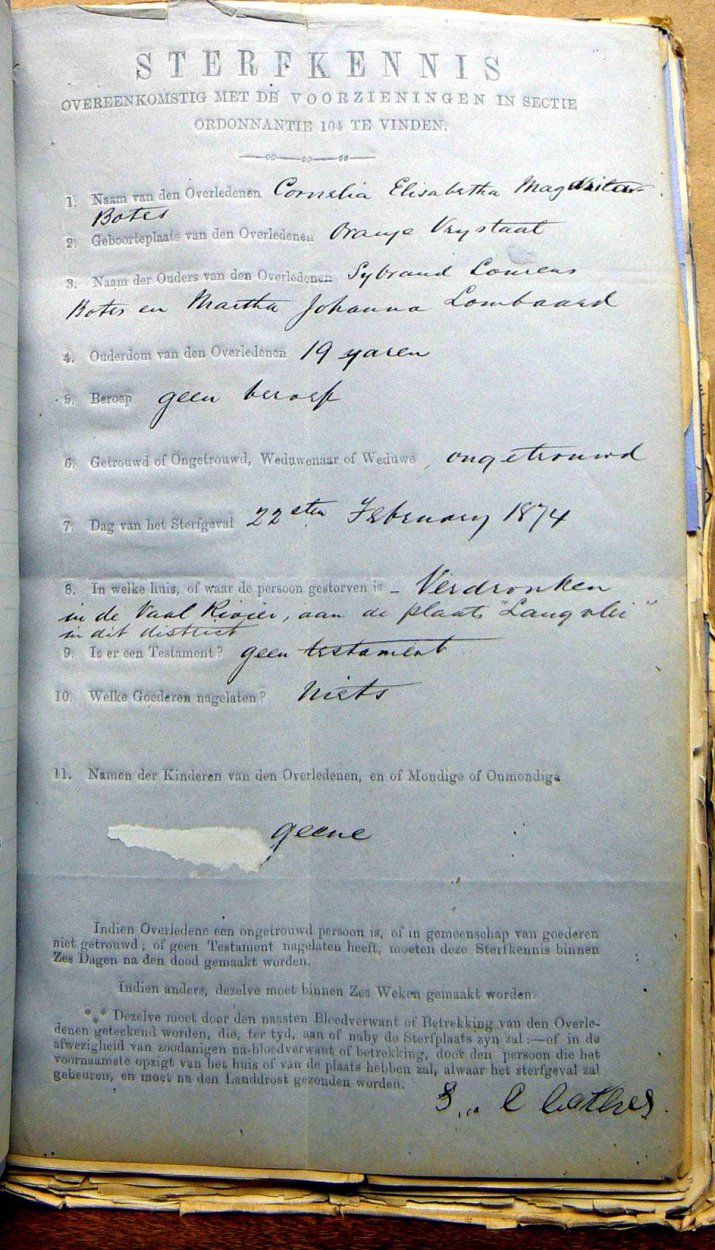 STERFKENNIS
OVEREENKOMSTIG MET DE VOORZIENINGEN IN SECTIE
ORDONNANTIE 104 TE VINDEN.
1. Naam van den Overledenen Cornelia Elisabetha
Botes
2. Geboorteplaats van den Overledenen Oranje Vrystaat
3. Naam der Ouders van den Overledenen Sybrand Lourens
Botes en Martha Johanna Lombaard
4. Ouderdom van den Overledenen 19 yaren
5. Beroep geen beroep
6. Getrouwd of Ongetrouwd, Weduwenaar of Weduwe ongetrouwd
7. Dag van het Sterfgeval 22sten February 1874
8. In welke huis, of waar de persoon gestorven is – Verdronken
in de Vaal Rivier, aan de plaats "Langvlei"
in dit district
9. Is er een Testament? geen testament
10. Welke Goederen nagelaten? Niets
11. Namen der Kinderen van den Overledenen, en of Mondige of Onmondige
geene
Indien Overledene een ongetrouwd persoon is, of in gemeenschap van goederen
niet getrouwd; of geen Testament nagelaten heeft, moeten deze Sterfkennis binnen
Zes Dagen na den dood gemaakt worden.
Indien anders, dezelve moet binnen Zes Weken gemaakt worden.
*.* Dezelve moet door den naasten Bloedverwant of Betrekking van den Overle-
denen geteekend worden, die, ter tyd, aan of naby de Sterfplaats zyn zal:—of in de
afwezigheid van zoodanigen na-bloedverwant of betrekking, door den persoon die het
voornaamste opzigt van het huis of van de plaats hebben zal, alwaar het sterfgeval zal
gebeuren, en moet na den Landdrost gezonden worden.